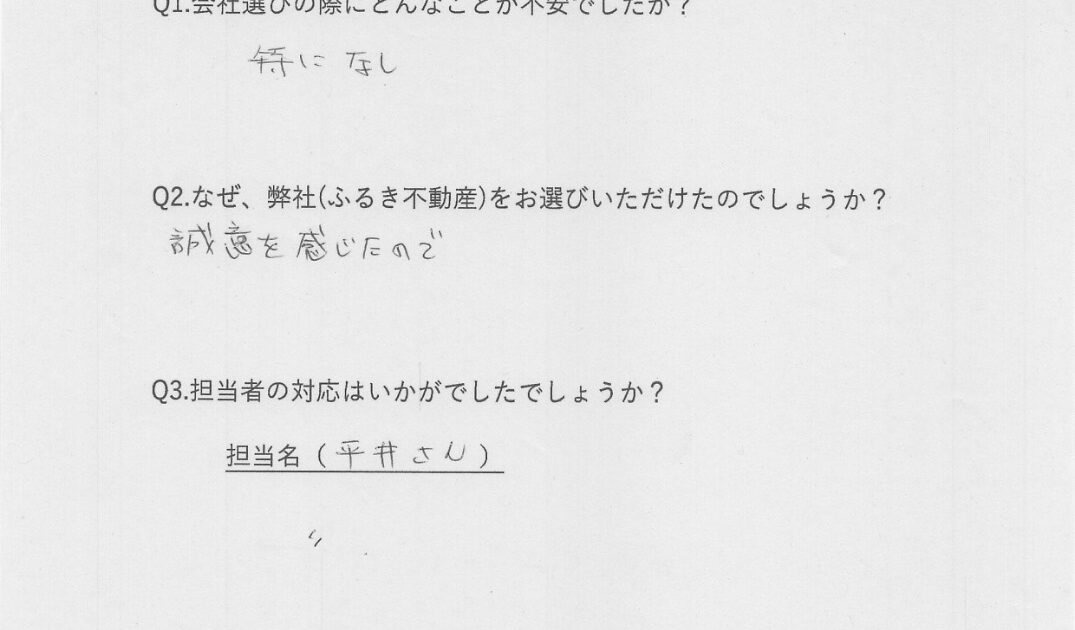 Q1.会社選びの際にどんなことが不安でしたか？
特に なし
Q2.なぜ、弊社(ふるき不動産)をお選びいただけたのでしょうか？
誠意を感じたので
Q3.担当者の対応はいかがでしたでしょうか？
担当名（平井さん）
〃